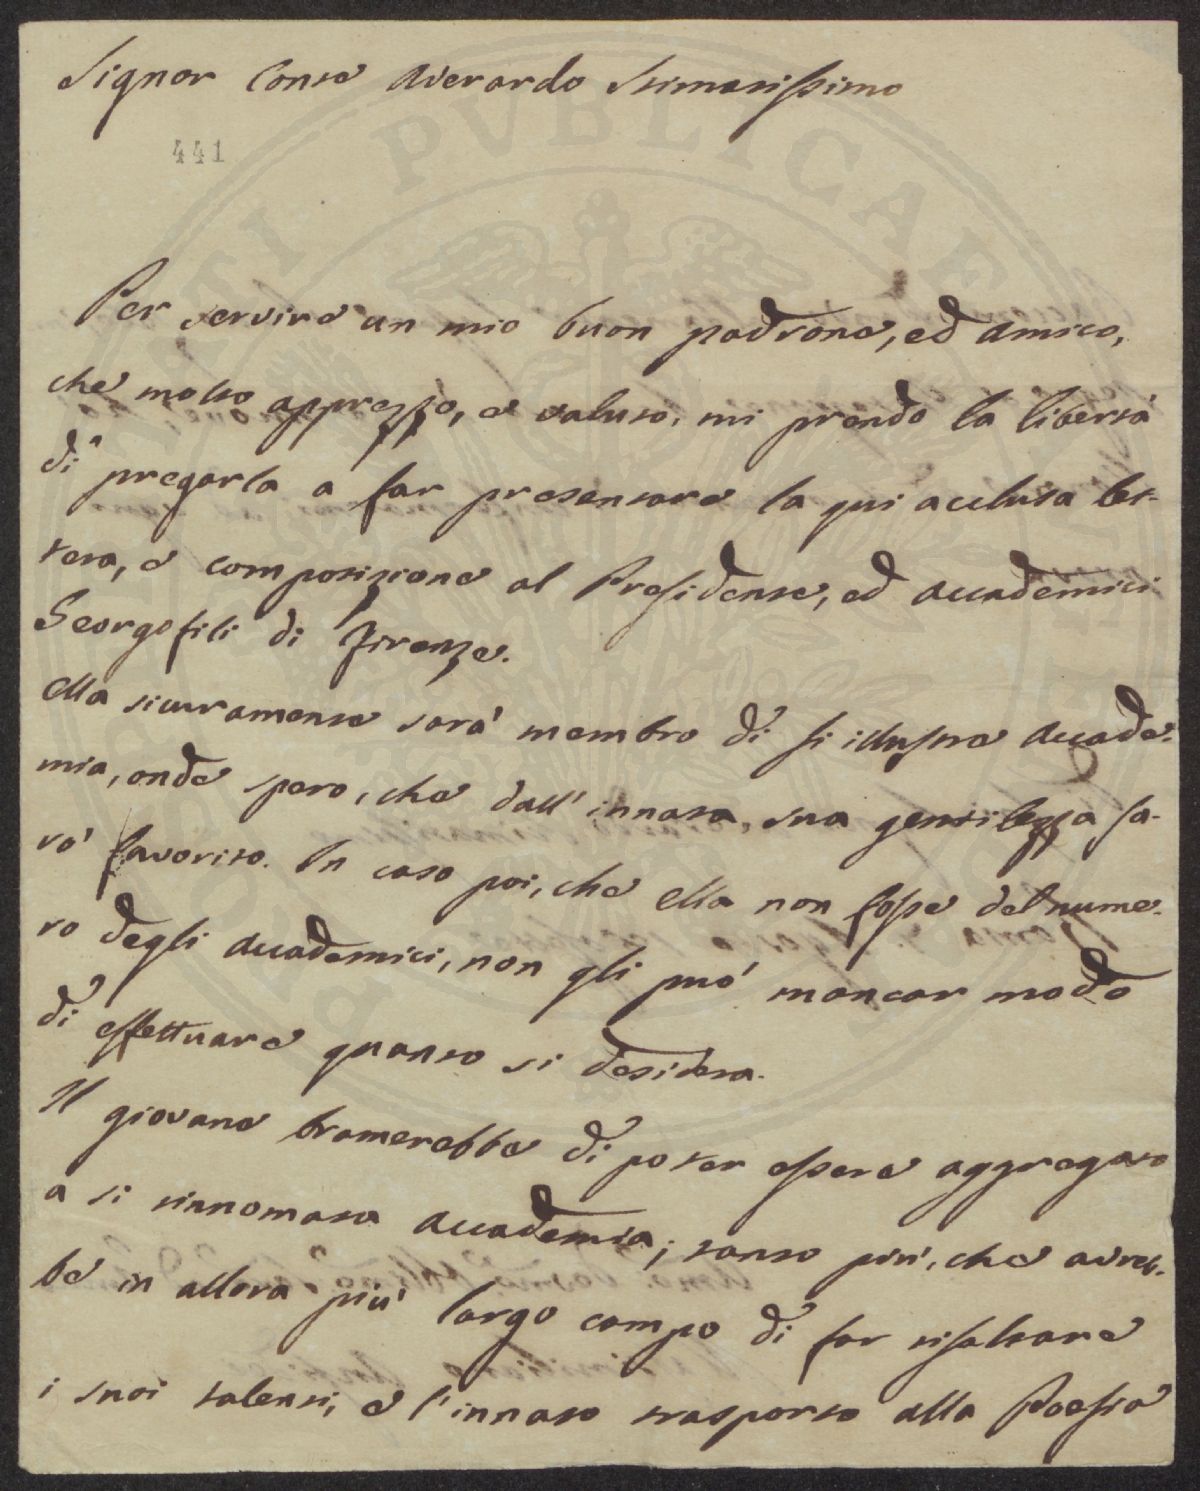 Signor Conte Averardo Stimatissimo
441
Per servire un mio buon padrone, ed amico,
che molto apprezzo, e valuto, mi prendo la libertà
di pregarla a far presentare la qui acclusa let-
tera, e composizione al Presidente, ed Accademici
Georgofili di Firenze.
Ella sicuramente sarà membro di sì illustre Accade-
mia, onde spero, che dall' innata, sua gentilezza sa-
rò favorito. In caso poi, che Ella non fosse del nume-
ro degli Accademici, non gli può mancar modo
di effettuare quanto si desidera.
Il giovane bramerebbe di poter essere aggregato
a sì rinnomata Accademia; tanto più, che avreb-
be in allora più largo campo di far risaltare
i suoi talenti, e l'innato trasporto alla Poesia
PVBLICAE